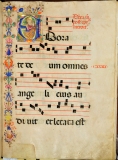 ADora
te de um omnes
ange li eius au
diuit et letata est